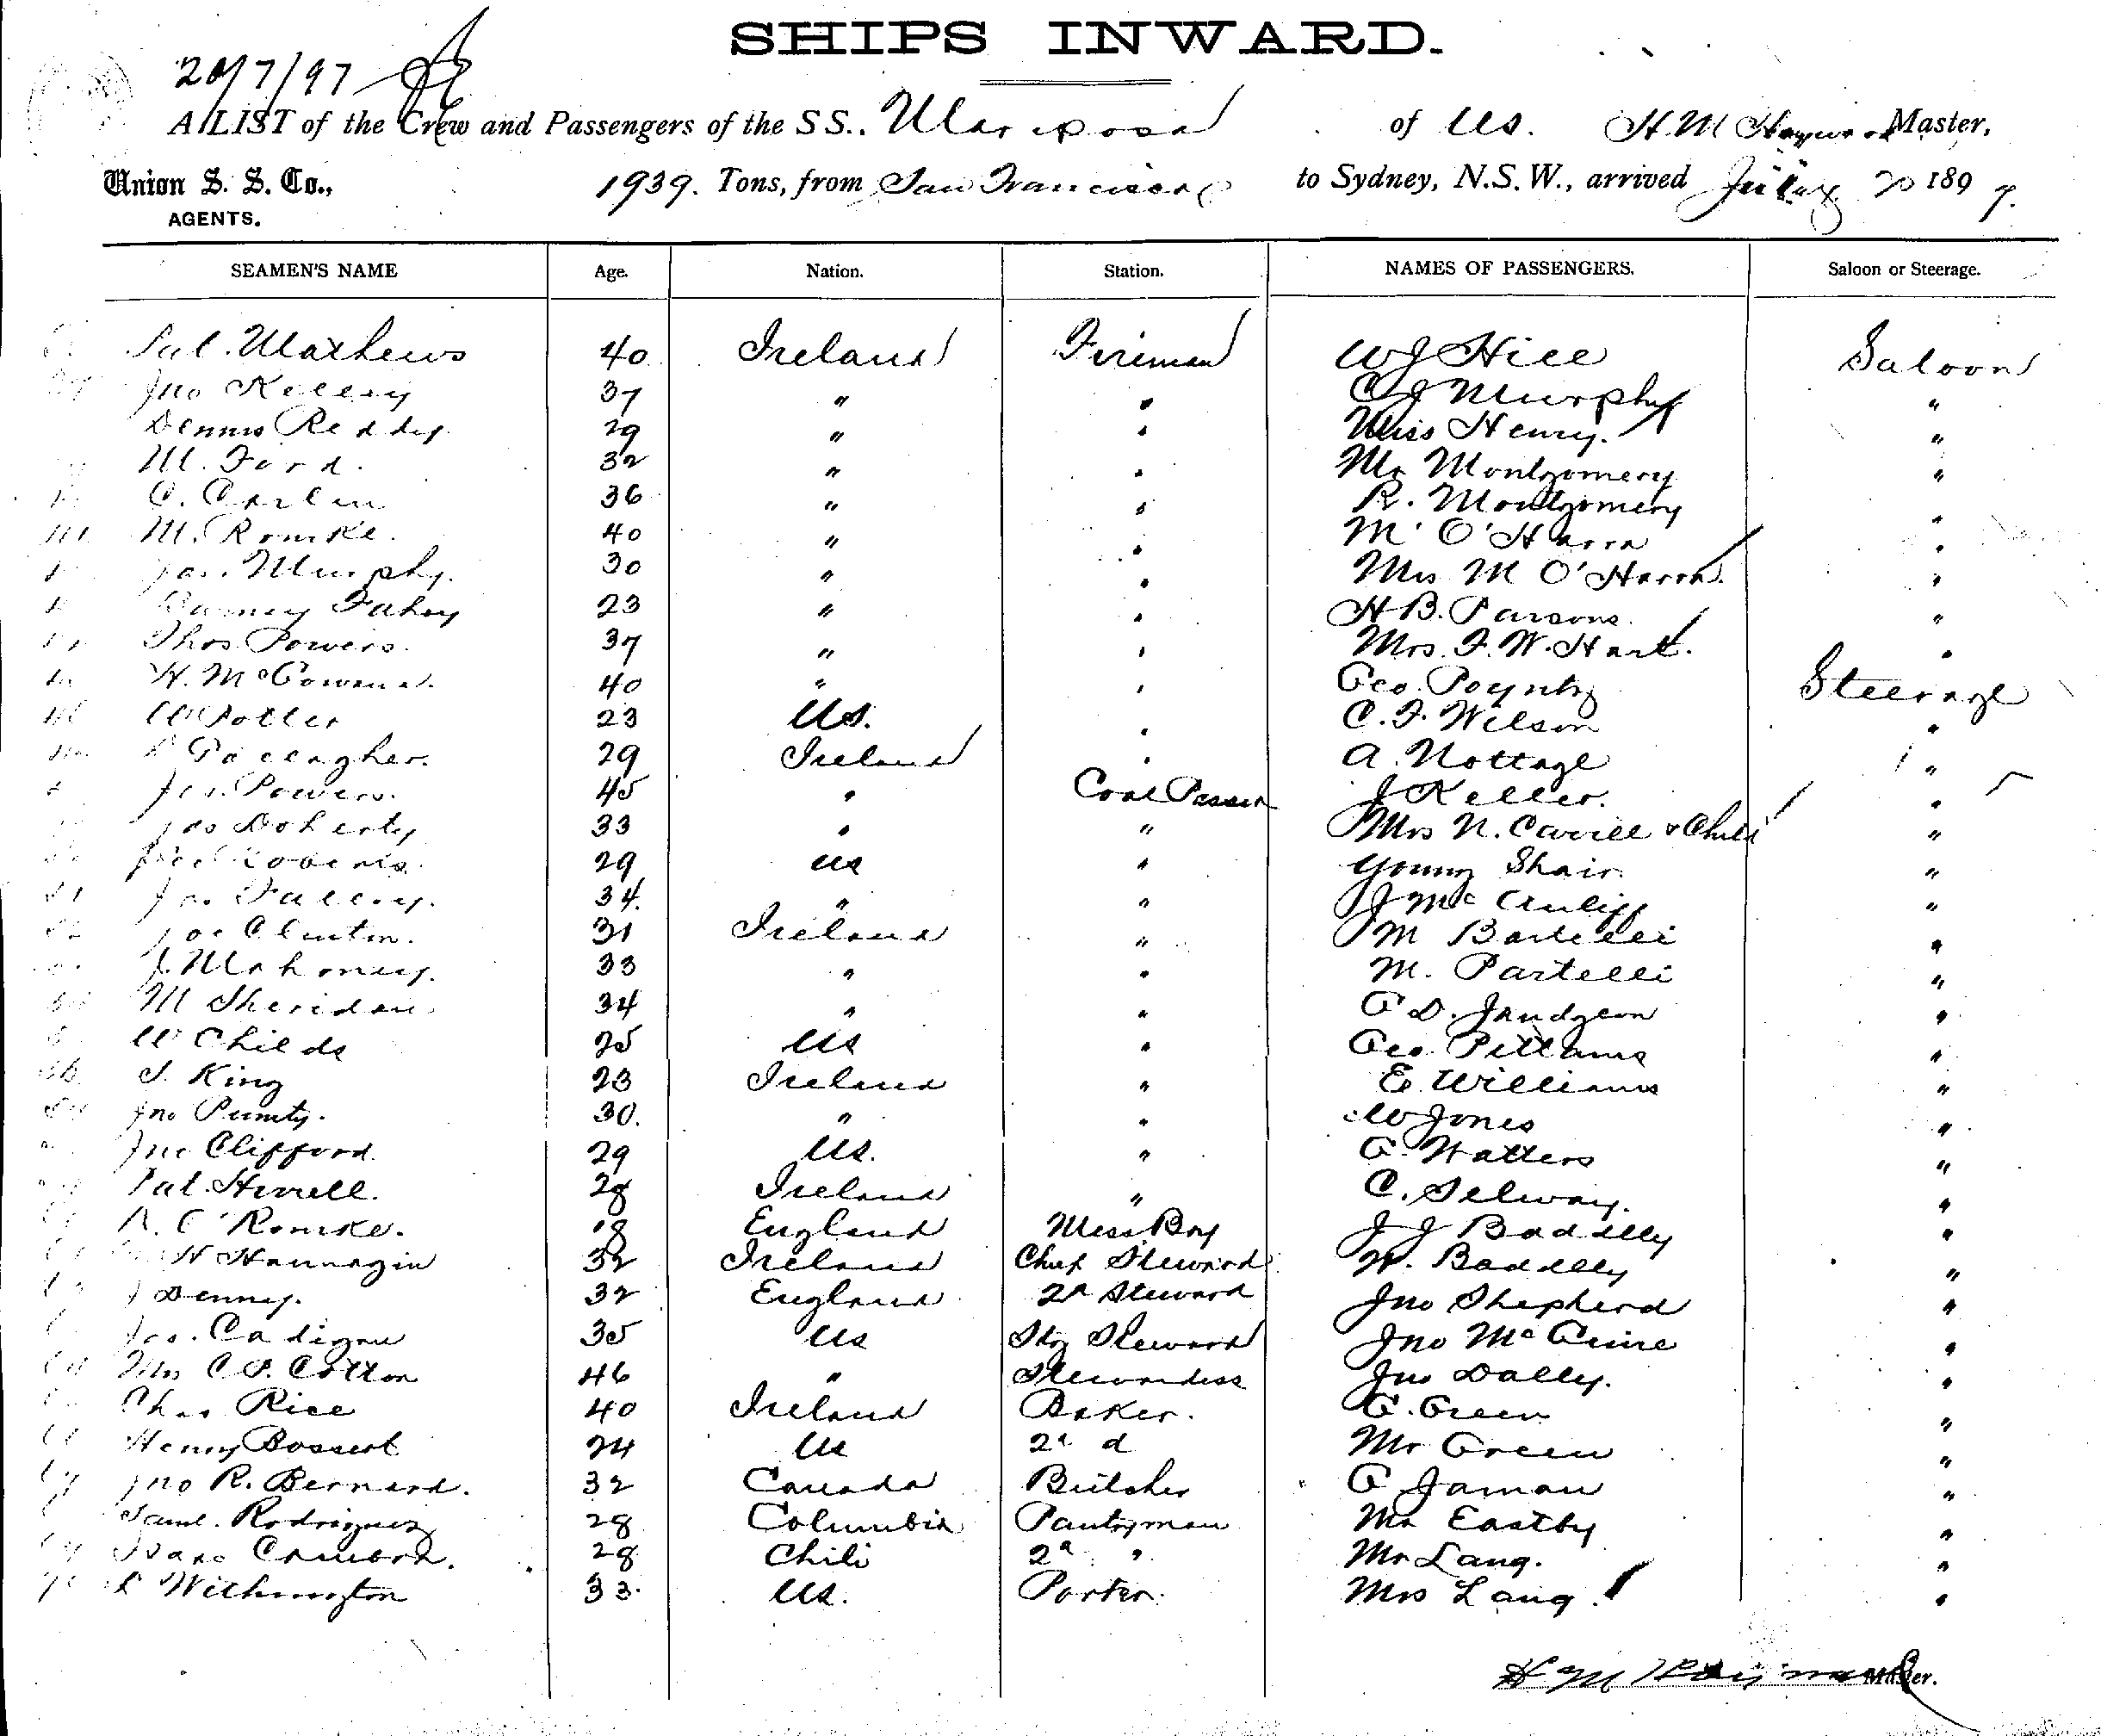 SHIPS INWARD.
20/7/97
A LIST of the Crew and Passengers of the S S.. Mariposa of US. H M Hayward Master,
Union S. S. Co., 1939. Tons, from San Francisco to Sydney, N.S.W., arrived July 20 1897.
AGENTS.
SEAMEN'S NAME Age. Nation. Station. NAMES OF PASSENGERS. Saloon or Steerage.
Pat. Mathews 40 Ireland Fireman W J Hill Saloon
Jno Kelley 37 " " C J Murphy "
Dennis Reddy 29 " " Miss Henry. "
M. Ford. 32 " " Mr Montgomery "
C. Carlin 36 " " R. Montgomery
M. Rourke. 40 " " M. O'Harra "
Jas. Murphy. 30 " " Mrs M O'Harra. "
Barney Fahey 23 " " H B. Parsons. "
Thos Powers. 37 " " Mrs. F. W. Hart. "
H. McGowan 40 " " Geo. Poyntz Steerage
W Potter 23 US. " C. F. Wilson "
Gallagher. 29 Ireland " A. Nottage "
Jas. Powers. 45 " Coal Passer J Keller. "
Jas Doherty 33 " " Mrs N. Carill & Child "
Fred Roberts. 29 US " Young Shair. "
Jas. Falley. 34. " " J McAuliff "
Jos Clinton. 31 Ireland " M Bartelli "
J. Mahoney. 33 " " M. Partelli "
M Sheridan. 34 " " G D. "
W Childs 25 US " Geo. Pittams "
S. King 23 Ireland " E. Williams "
Jno 30. " " W Jones "
Jno Clifford. 29 US. " G. Watters "
Pat. 28 Ireland " C. Selway. "
O'Rourke. 18 England Mess Boy J J Baddily "
H Hannagin 32 Ireland Chief Steward W. Baddily "
J Denny. 32 England 2d Steward Jno Shepherd "
Jas. Cadigan 35 US Stg Steward Jno McGuire "
Mrs C. F. Cotton 46 " Stewardess Jno Dalley. "
Chas Rice 40 Ireland Baker. G. Green "
Henry Bossert 24 US 2d d Mr Green "
Jno R. Bernard. 32 Canada Butcher G Jaman "
Saml. Rodriguez 28 Columbia Pantryman Mr Eastby "
28 Chili 2d " Mr Lang. "
L Withington 33. US. Porter. Mrs Lang. "
H M Hayward Master.